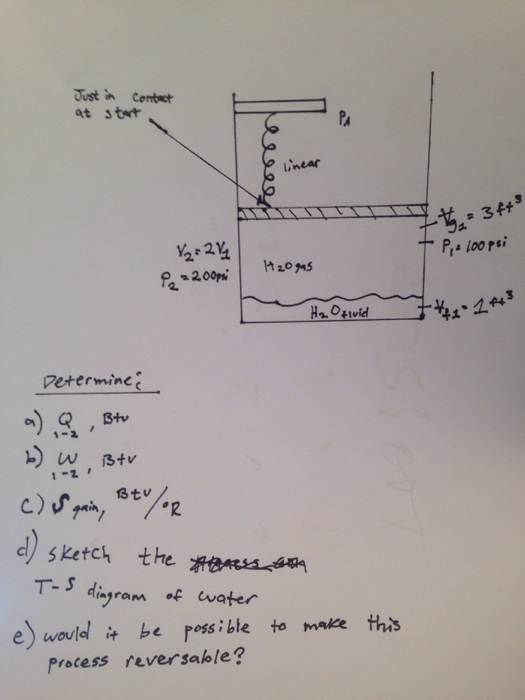 Just in contact
at start
P1
linear
V_g1 = 3 ft³
P1 = 100 psi
V2 = 2V1
P2 = 200psi
H2O gas
H2O fluid
V_f1 = 1 ft³
Determine:
a) Q 1-2, Btu
b) W 1-2, Btu
c) S gain, Btu/°R
d) sketch the
T-S diagram of water
e) would it be possible to make this
process reversable?